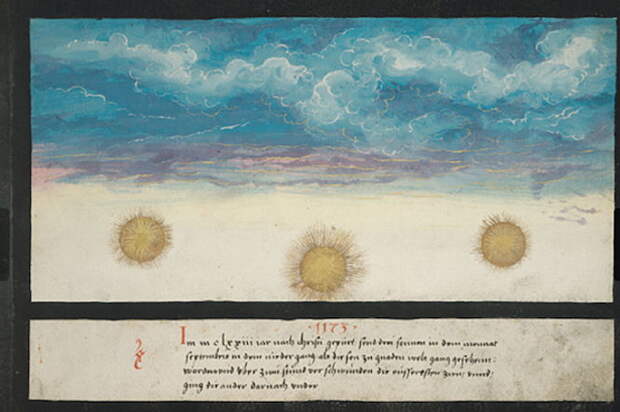 1173
Im m c lxxiii iar nach christi gepürt send drei sonnen in dem monat
septembris in dem nieder gang als die son zu gnaden welt gang gesehenn:
wordenn vnd vber zwai stund ver schwunden die eüsseresten vnnd:
ging die ander darnach vnder